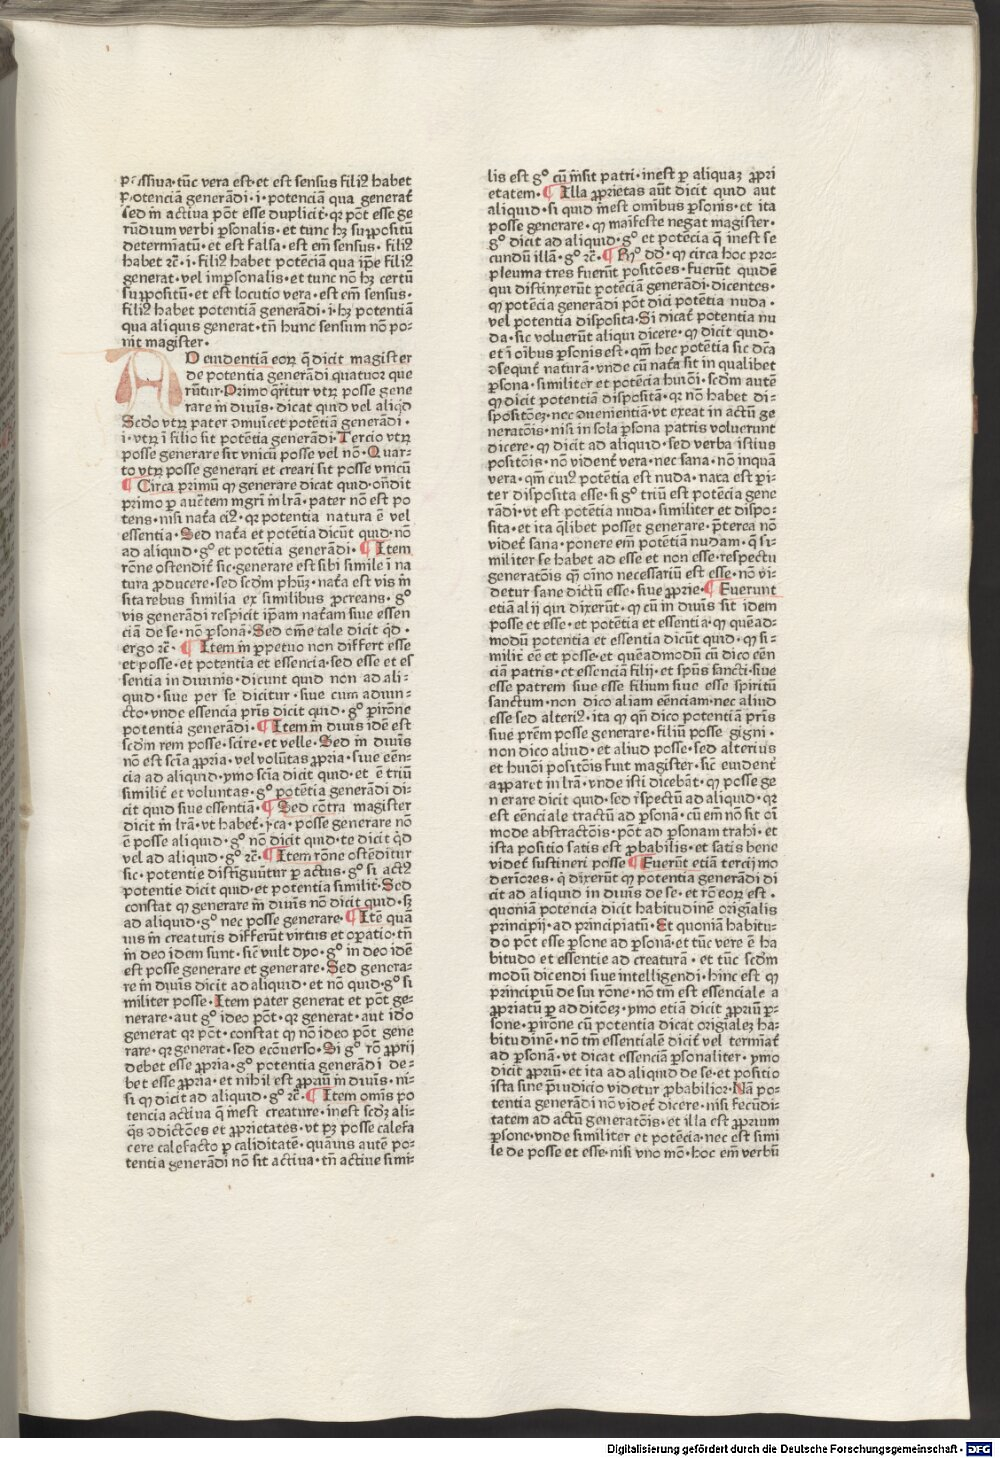 passiua·tūc vera est·et est sensus filiꝰ habet
potenciā generādi·i·potenciā qua generat᷑
sed in actiua pōt esse duplicit᷑·qꝛ pōt esse ge
rūdium verbi ꝑsonalis·et tunc hꝫ suppositū
determinatū·et est falsa·est em̄ sensus·filiꝰ
habet ⁊c̄·i·filiꝰ habet potēciā qua ip̄e filiꝰ
generat·vel imꝑsonalis·et tunc nō hꝫ certū
suppositū·et est locutio vera·est em̄ sensus·
filiꝰ habet potentiā generādi·i·hꝫ potentiā
qua aliquis generat·tn̄ hunc sensum nō po-
nit magister·
AD euidentiā eoꝝ q̄ dicit magister
de potentia generādi quatuor que
rūtur·Primo q̄ritur vtꝝ posse gene
rare in diuis̄·dicat quid vel aliq̄d
Scd̄o vtꝝ pater ꝯmuicet potētiā generādi·
i·vtꝝ ī filio sit potētia generādi·Tercio vtꝝ
posse generare sit vnicū posse vel nō·Quar-
to vtꝝ posse generari et creari sit posse vnicū
¶ Circa primū qꝫ generare dicat quid·on̄dit
primo ꝑ auc̄tem mgr̄i in lr̄a·pater nō est po
tens·nisi nat᷑a eiꝰ·qꝛ potentia natura ē vel
essentia·Sed nat᷑a et potētia dicūt quid·nō
ad aliquid·gͦ et potētia generādi·¶ Item
rōne ostendit᷑ sic·generare est sibi simile ī na
tura ꝓducere·sed scd̄m ph̄uꝫ·nat᷑a est vis in
sita rebus similia ex similibus ꝓcreans·gͦ
vis generādi respicit ip̄am nat᷑am siue essen
ciā de se·nō ꝑsonā·Sed om̄e tale dicit q̄d·
ergo ⁊c̄·¶ Item in ꝑpetuo non differt esse
et posse·et potentia et essencia·sed esse et es
sentia in diuinis·dicunt quid non ad ali-
quid·siue per se dicitur·siue cum adiun-
cto·vnde essencia pr̄is dicit quid·gͦ pirōne
potentia generādi·¶ Item in diuis̄ idē est
scd̄m rem posse·scire·et velle·Sed in diuis̄
nō est scīa ꝓpria·vel volūtas ꝓpria·siue eēn-
cia ad aliquid·ymo scīa dicit quid·et ē triū
similit᷑ et voluntas·gͦ potētia generādi di-
cit quid siue essentiā·¶ Sed cōtra magister
dicit in lr̄a·vt habet᷑·j·ca·posse generare nō
ē posse aliquid·gͦ nō dicit quid·te dicit q̄d
vel ad aliquid·gͦ ⁊c̄·¶ Item rōne ostēditur
sic·potentie distiguūtur ꝑ actus·gͦ si actꝰ
potentie dicit quid·et potentia similit᷑·Sed
constat qꝫ generare in diuis̄ nō dicit quid·sꝫ
ad aliquid·gͦ nec posse generare·¶ Itē quā
uis in creaturis differūt virtus et oꝑatio·tn̄
in deo idem sunt·sic̄ vult dyo·gͦ in deo idē
est posse generare et generare·Sed genera-
re in diuis̄ dicit ad aliquid·et nō quid·gͦ si
militer posse·Item pater generat et pōt ge-
nerare·aut gͦ ideo pōt·qꝛ generat·aut ido
generat qꝛ pōt·constat qꝫ nō ideo pōt gene
rare·qꝛ generat·sed ecōuerso·Si gͦ rō ꝓprij
debet esse ꝓpria·gͦ potentia generādi de-
bet esse ꝓpria·et nihil est ꝓpriū in diuis̄·ni-
si qꝫ dicit ad aliquid·gͦ ⁊c̄·¶ Item omīs po
tencia actiua q̄ inest creature·inest scd̄ꝫ ali-
q̄s ꝯdictōes et ꝓprietates·vt pꝫ posse calefa
cere calefacto ꝑ caliditatē·quāuis autē po-
tentia generādi nō sit actiua·tn̄ actiue simi-
lis est gͦ cū insit patri·inest ꝑ aliquaꝫ ꝓpri
etatem·¶ Illa ꝓprietas aūt dicit quid aut
aliquid·si quid inest omibus ꝑsonis·et ita
posse generare·qꝫ maīfeste negat magister·
gͦ dicit ad aliquid·gͦ et potēcia q̄ inest se
cundū illā·gͦ ⁊c̄·¶ Rͦ dd̄·qꝫ circa hoc pro-
pleuma tres fuerūt positōes·fuerūt quidē
qui distinxerūt potēciā generādi·dicentes·
qꝫ potēcia generādi pōt dici potētia nuda·
vel potentia disposita·Si dicat᷑ potentia nu
da·sic voluerūt aliqui dicere·qꝫ dicit quid·
et ī oībus ꝑsonis est·qm̄ hec potētia sic dc̄a
ꝯsequit᷑ naturā·vnde cū nat᷑a sit in qualibet
ꝑsona·similiter et potēcia huiōi·scd̄m autē
qꝫ dicit potentiā disposita·qꝛ nō habet di-
spositōeꝫ·nec ꝯuenientiā·vt exeat in actū ge
neratōis·nisi in sola ꝑsona patris voluerunt
dicere·qꝫ dicit ad aliquid·sed verba istius
positōis·nō vident᷑ vera·nec sana·nō inquā
vera·qm̄ cuiꝰ potētia est nuda·nata est ꝑi-
ter disposita esse·si gͦ triū est potēcia gene
rādi·vt est potētia nuda·similiter et dispo-
sita·et ita q̄libet posset generare·p̄terea nō
videt᷑ sana·ponere em̄ potētiā nudam·q̄ si-
militer se habet ad esse et non esse·respectu
generatōis q̄ oīno necessariū est esse·nō vi-
detur sane dictū esse·siue ꝓprie·¶ Fuerunt
etiā alij qui dixerūt·qꝫ cū in diuis̄ sit idem
posse et esse·et potētia et essentia·qꝫ quēad-
modū potentia et essentia dicūt quid·qꝫ si-
milit᷑ eē et posse·et quēadmodū cū dico eēn
ciā patris·et essenciā filij·et sp̄us sancti·siue
esse patrem siue esse filium siue esse spiritū
sanctum·non dico aliam eēnciam·nec aliud
esse sed alteriꝰ·ita qꝫ qn̄ dico potentiā pr̄is
siue pr̄em posse generare·filiū posse gigni·
non dico aliud·et aliud posse·sed alterius
et huiōi positōis fuit magister·sic̄ euident᷑
apparet in lr̄a·vnde isti dicebāt·qꝫ posse ge
nerare dicit quid·sed r̄spectū ad aliquid·qꝛ
est eēnciale tractū ad ꝑsonā·cū em̄ nō sit oī
mode abstractōis·pōt ad ꝑsonam trahi·et
ista positio satis est ꝓbabilis·et satis bene
videt᷑ sustineri posse ¶ Fuerūt etiā tercij mo
deriōres·q̄ dixerūt qꝫ potentia generādi di
cit ad aliquid in diuis̄ de se·et rō eoꝝ est·
quoniā potencia dicit habitudinē origīalis
principij·ad principiatū·Et quoniā habitu-
do pōt esse ꝑsone ad ꝑsonā·et tūc vere ē ha
bitudo et essentie ad creaturā·et tūc scd̄m
modū dicendi siue intelligendi·hinc est qꝫ
principiū de sui rōne·nō tm̄ est essenciale a
ꝓpriatū ꝑ additōeꝫ·ymo etiā dicit ꝓpriū ꝑ-
sone·pirōne cū potentia dicat origīaleꝫ ha-
bitudinē·nō tm̄ essentialē dicit᷑ vel termīat᷑
ad ꝑsonā·vt dicat essenciā ꝑsonaliter·ymo
dicit ꝓpriū·et ita ad aliquid de se·et positio
ista sine p̄iudicio videtur ꝓbabilior·Nā po-
tentia generādi nō videt᷑ dicere·nisi fecūdi-
tatem ad actū generatōis·et illa est ꝓprium
ꝑsone·vnde similiter et potēcia·nec est simi
le de posse et esse·nisi vno mō·hoc em̄ verbū
Digitalisierung gefördert durch die Deutsche Forschungsgemeinschaft - DFG